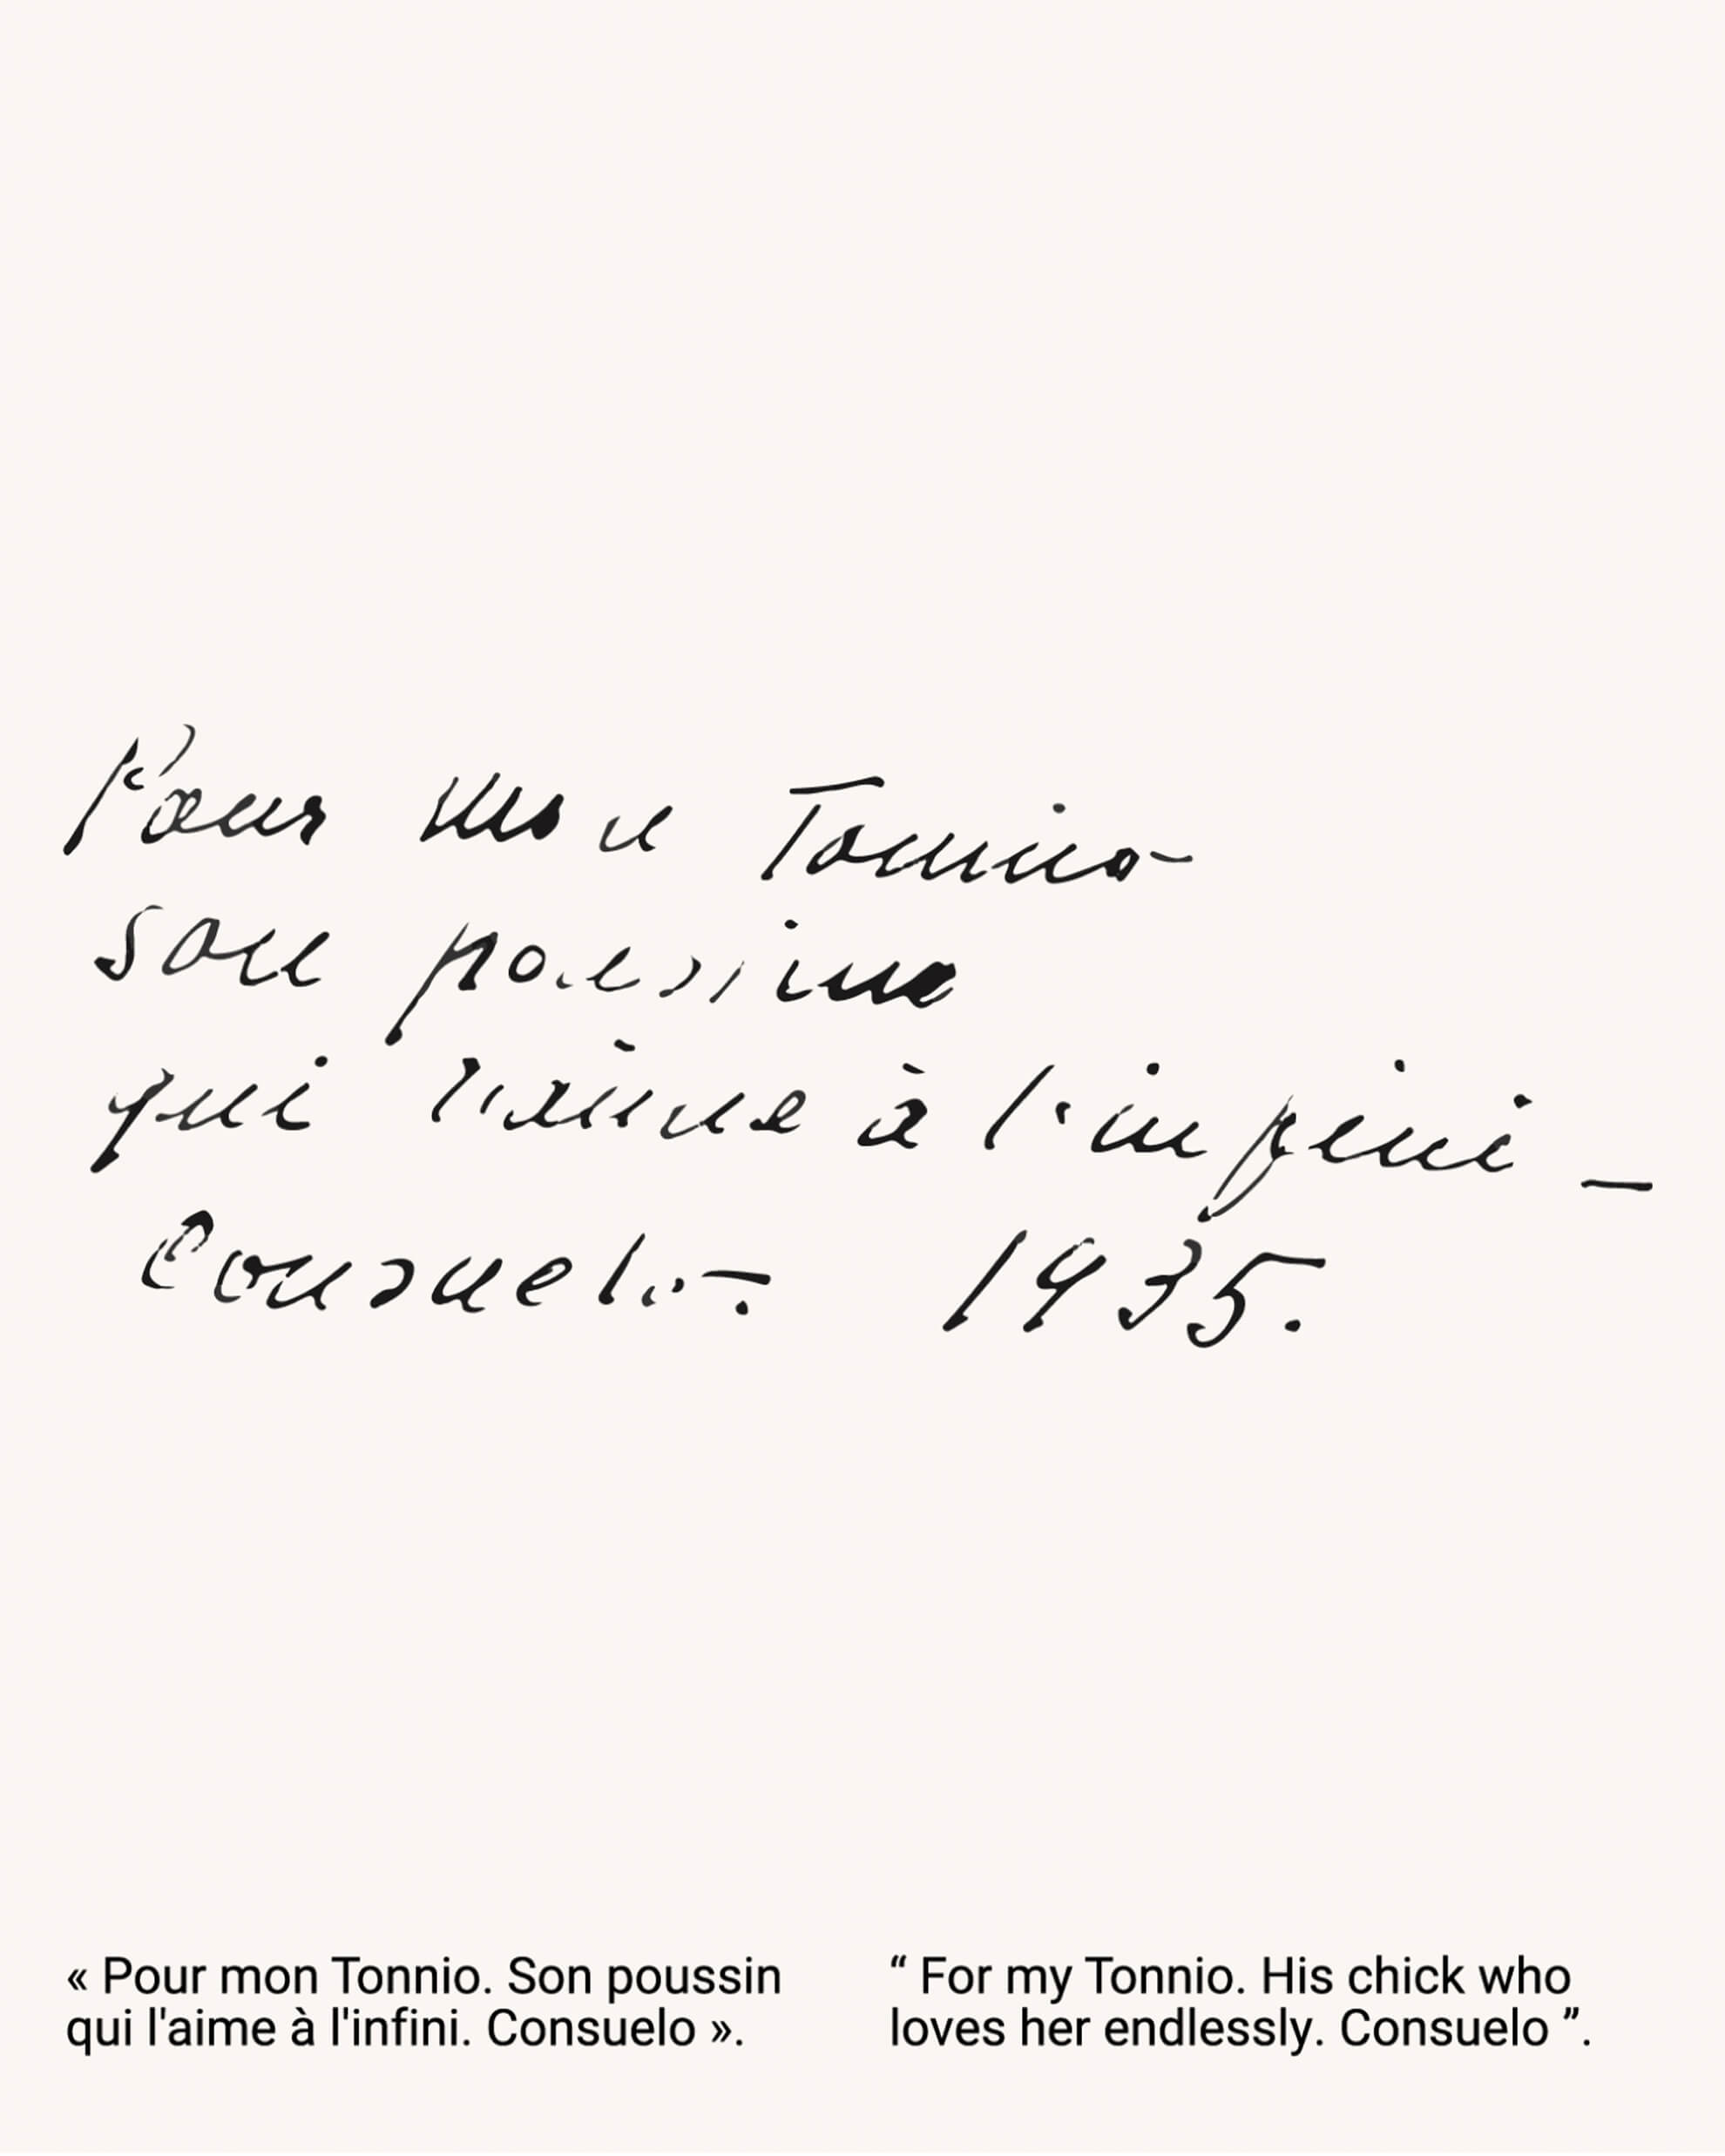 Pour mon Tonnio
son poussin
qui l'aime à l'infini _
Consuelo. 1935.
« Pour mon Tonnio. Son poussin
qui l'aime à l'infini. Consuelo ».
“ For my Tonnio. His chick who
loves her endlessly. Consuelo ”.